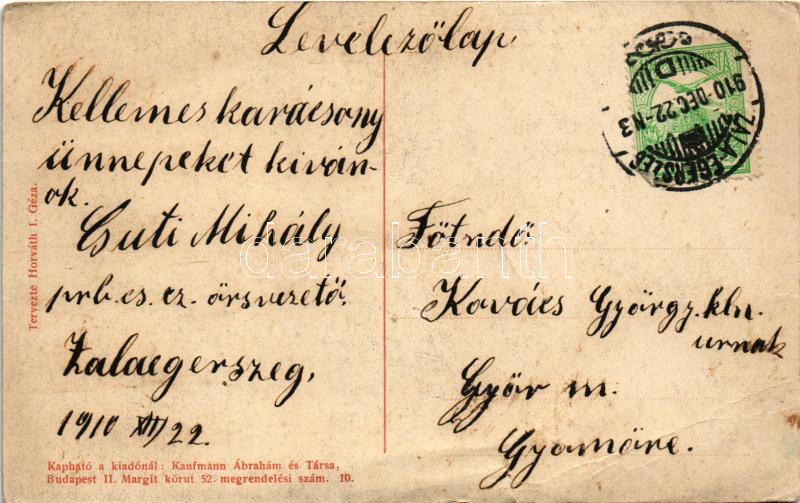 Levelezőlap
Kellemes karácsony
ünnepeket kiván-
ok.
Guti Mihály
prb. cs. cz. örsvezető.
Zalaegerszeg,
1910 XII/22.
Főtndő
Kovács György. kln.
urnak
Győr m.
Gyömöre.
910 DEC. 22-N3
ZALA-EGERSZEG
Tervezte Horváth I. Géza.
Kapható a kiadónál: Kaufmann Ábrahám és Társa,
Budapest II. Margit körut 52. megrendelési szám. 10.
darabanth